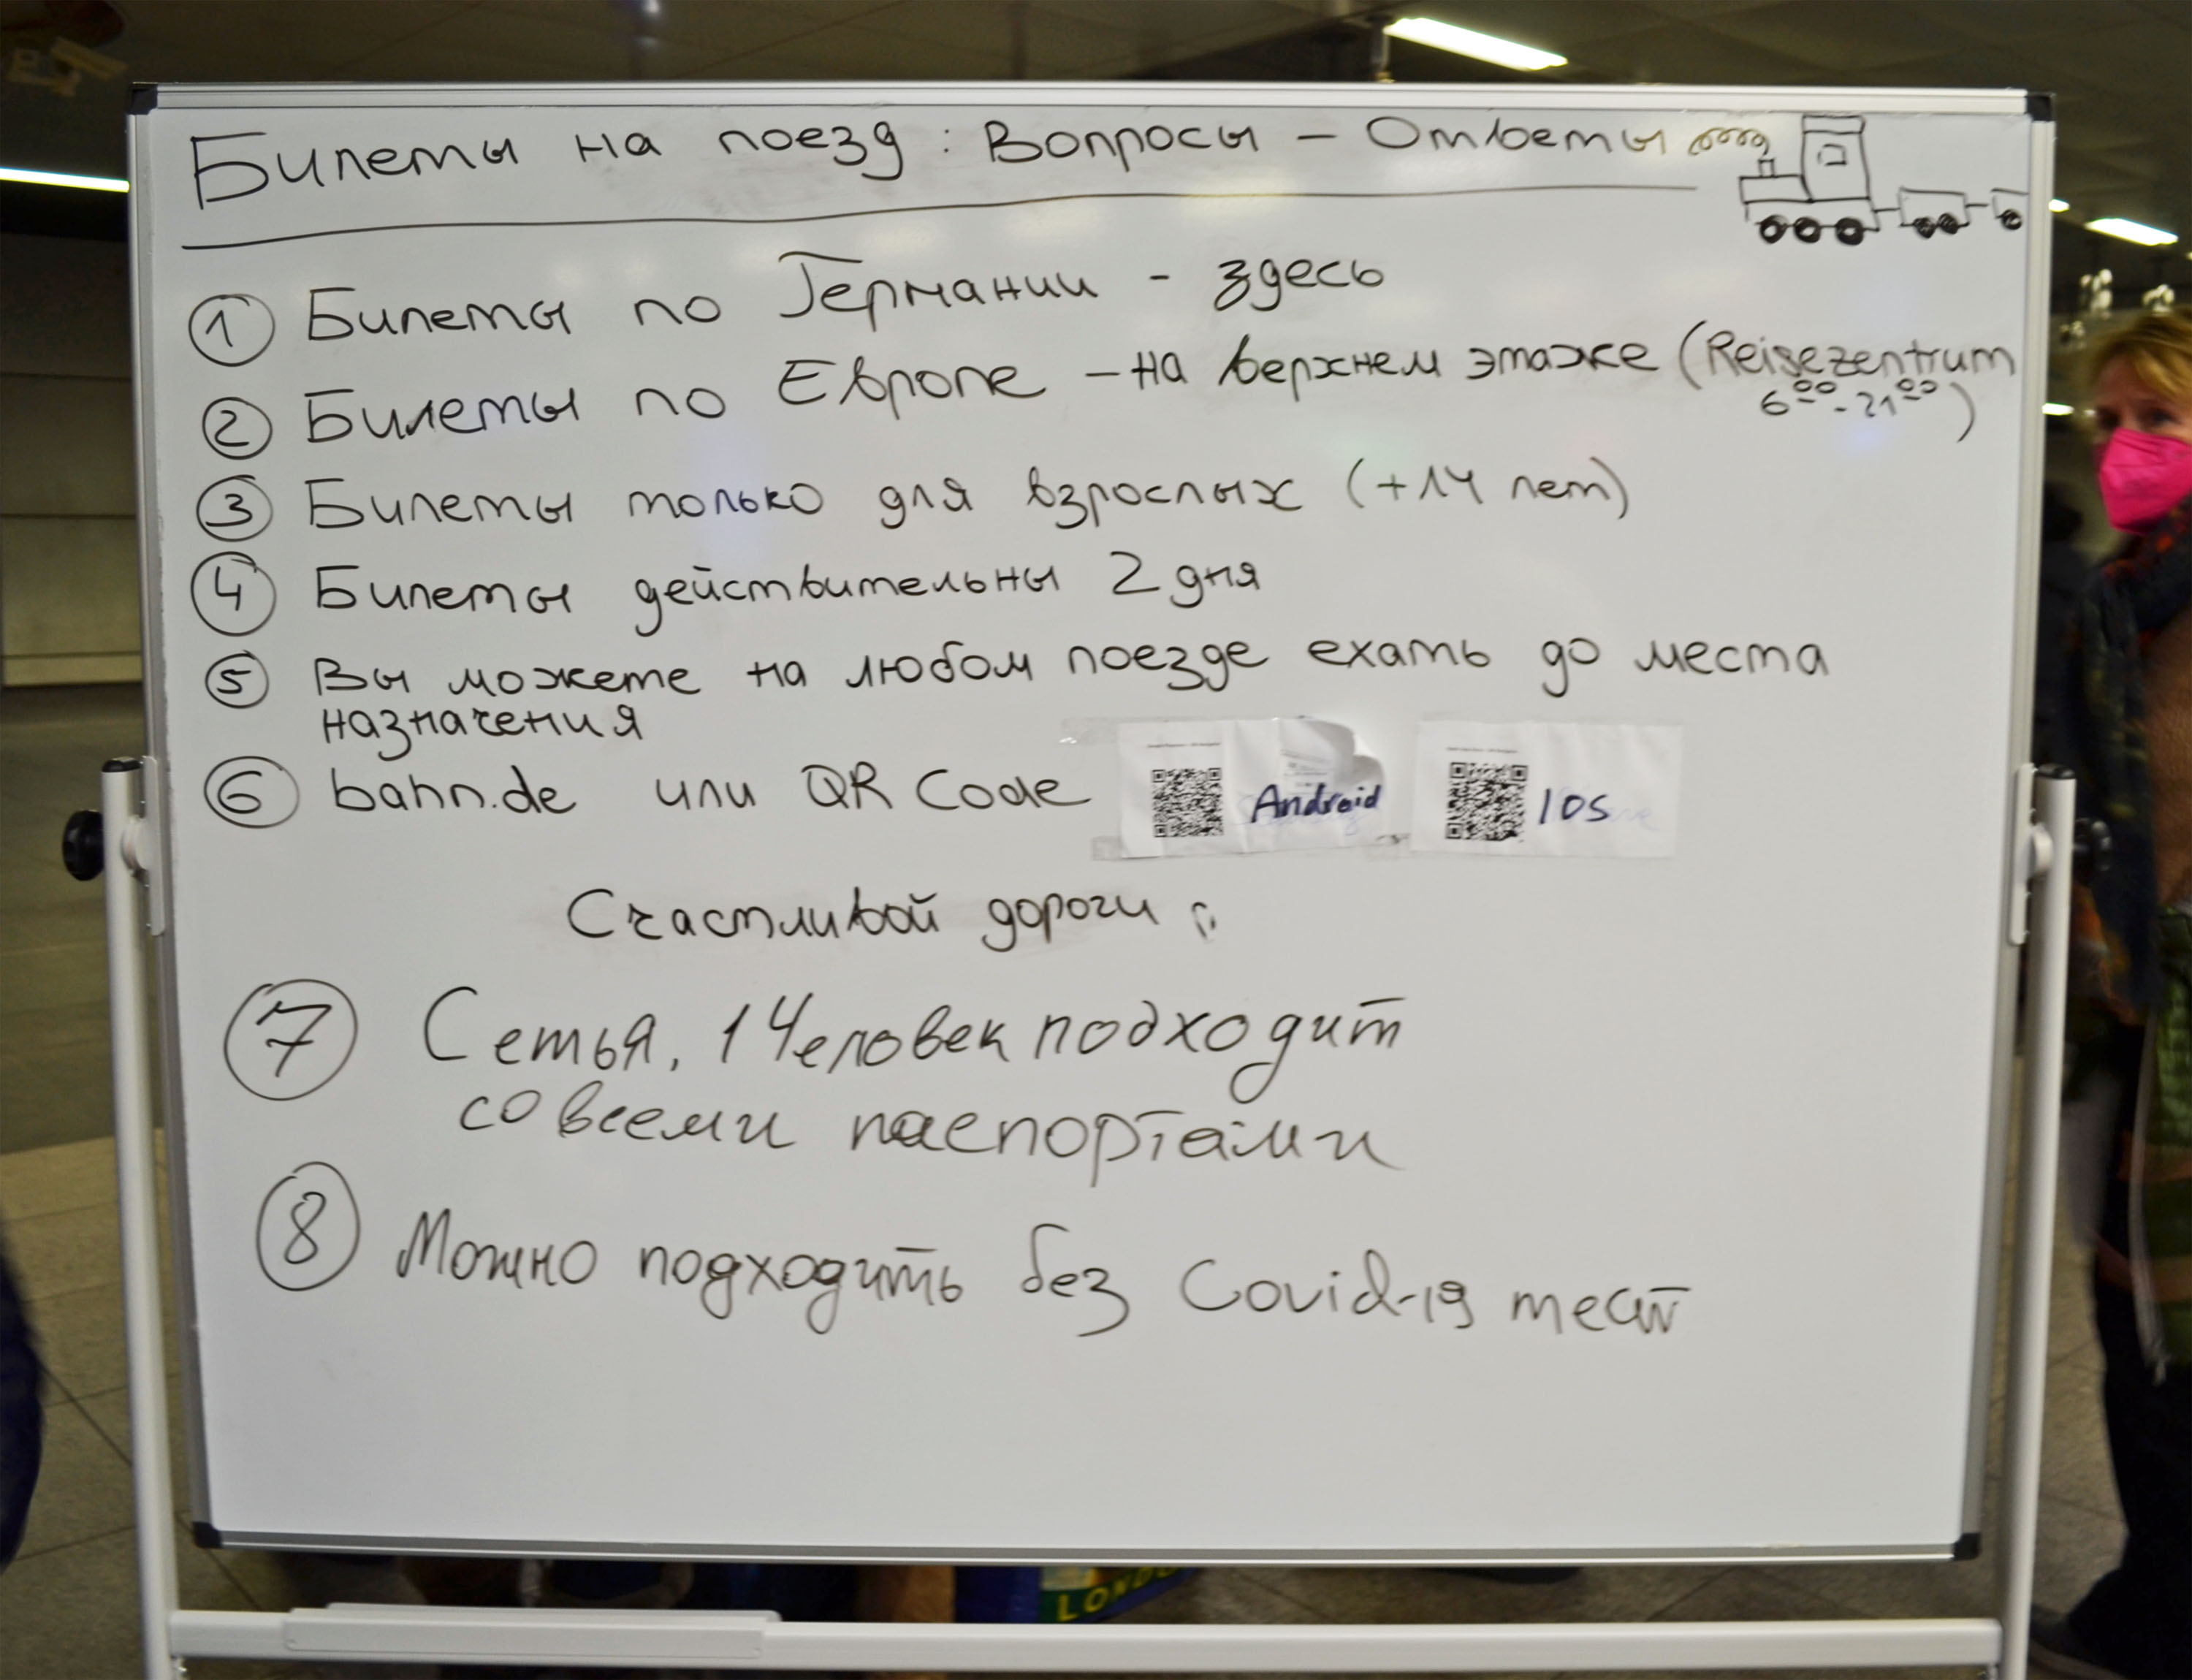 Билеты на поезд : Вопросы – Ответы
1 Билеты по Германии - здесь
2 Билеты по Европе – на верхнем этаже (Reisezentrum
6⁰⁰ - 21⁰⁰)
3 Билеты только для взрослых (+14 лет)
4 Билеты действительны 2 дня
5 Вы можете на любом поезде ехать до места
назначения
6 bahn.de или QR Code
Android
IOS
Счастливой дороги
7 Семья, 1 Человек подходит
со всеми паспортами
8 Можно подходить без Covid-19 тест